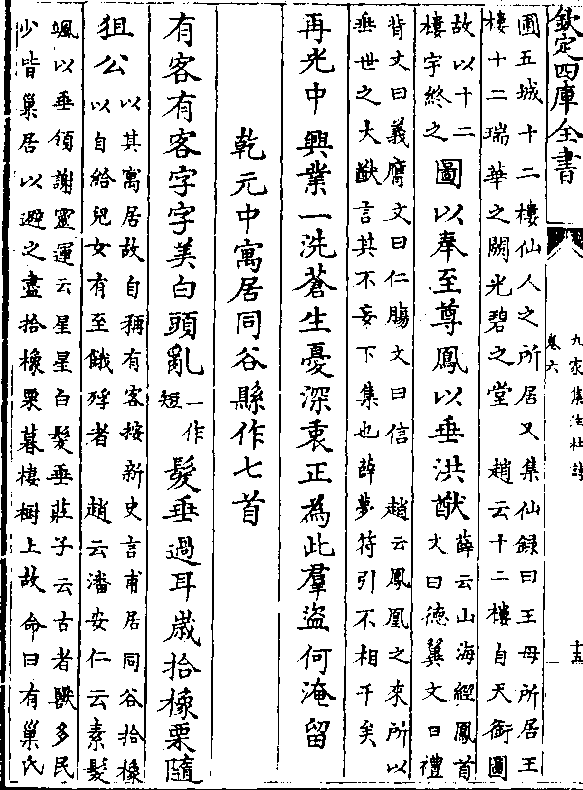 欽定四庫全書
九家集注杜詩
卷六
十五
圃五城十二樓仙人之所居又集仙録曰王母所居王
樓十二瑞華之闕光碧之堂　趙云十二樓自天衛圖
故以十二
樓字終之
圖以奉至尊鳳以垂洪猷
薛云山海經鳳首
文曰德翼文曰禮
背文曰義膺文曰仁膓文曰信　趙云鳳凰之來所以
垂世之大猷言其不妄下集也薛夢符引不相干矣
再光中興業一洗蒼生憂深衷正為此羣盜何淹留
乾元中寓居同谷縣作七首
有客有客字子美白頭亂
一作
短
髮垂過耳歲拾橡栗隨
狙公
以其寓居故自稱有客按新史言甫居同谷拾橡
以自給兒女有至餓殍者　趙云潘安仁云素髮
颯以垂領謝靈運云星星白髮垂莊子云古者獸多民
少皆巢居以避之晝拾橡栗暮棲樹上故命曰有巢氏